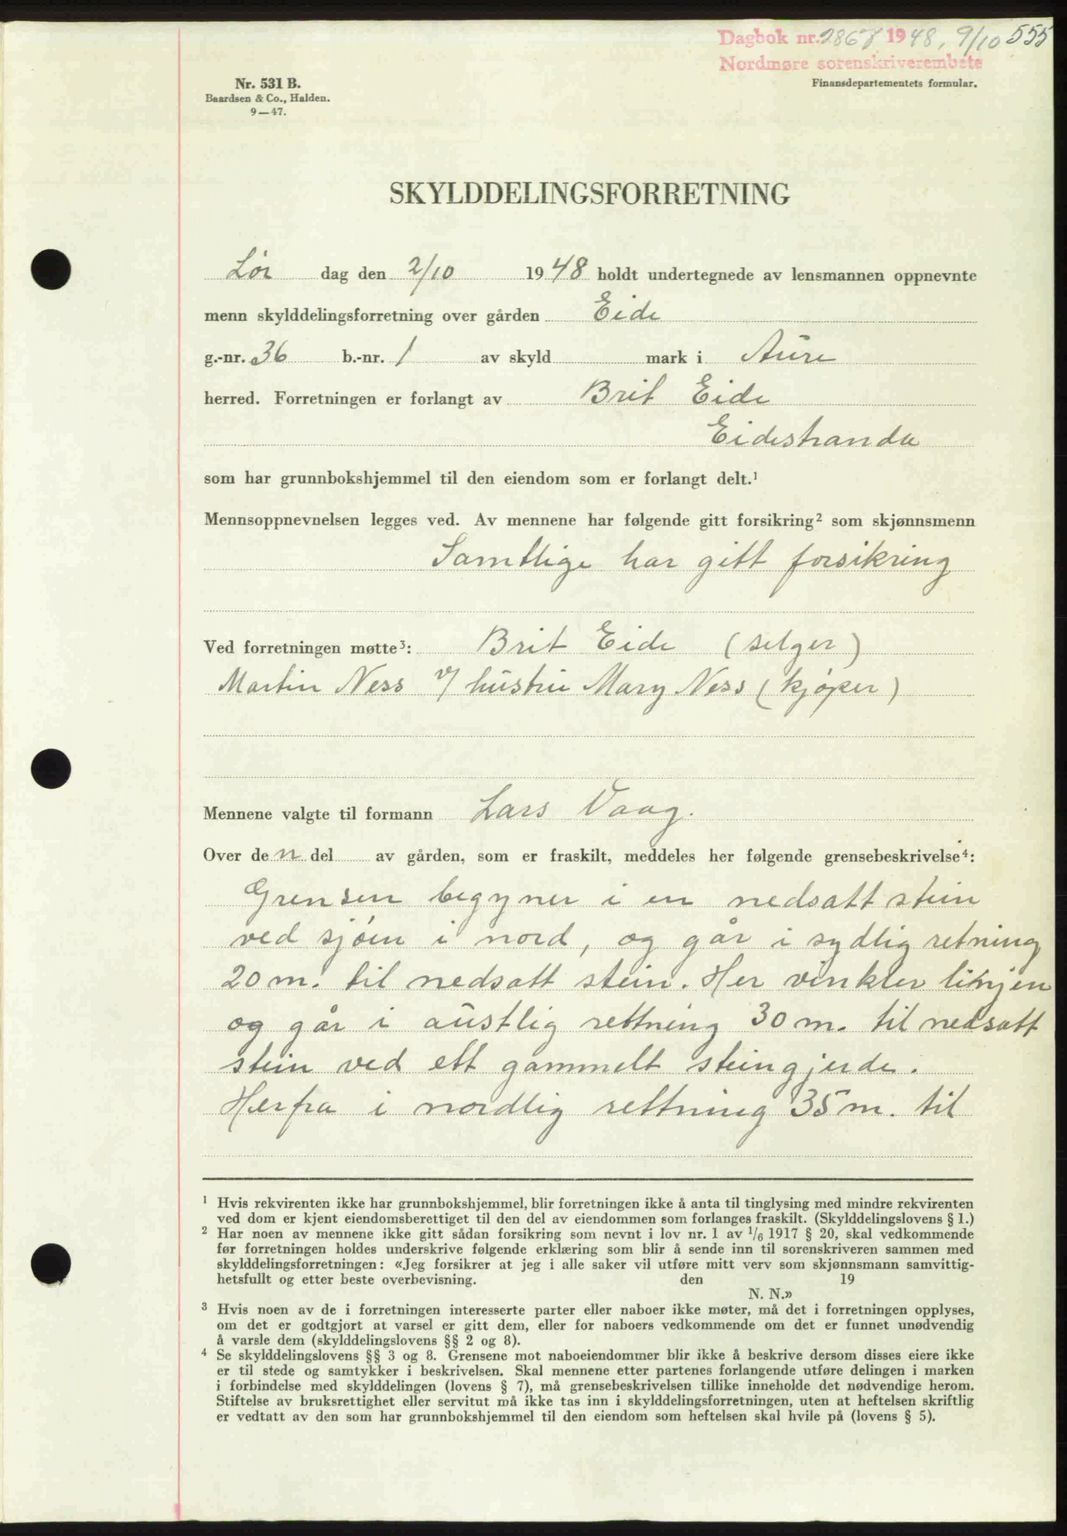 Dagbok nr. 2867 1948, 9/10 555
Nordmøre sorenskriverembete
Finansdepartementets formular.
Nr. 531 B.
Baardsen & Co., Halden.
9—47.
SKYLDDELINGSFORRETNING
Lør dag den 2/10 1948 holdt undertegnede av lensmannen oppnevnte
menn skylddelingsforretning over gården Eide
g.-nr. 36 b.-nr. 1 av skyld mark i Aure
herred. Forretningen er forlangt av Brit Eide
Eidestranda
som har grunnbokshjemmel til den eiendom som er forlangt delt.¹
Mennsoppnevnelsen legges ved. Av mennene har følgende gitt forsikring² som skjønnsmenn
Samtlige har gitt forsikring
Ved forretningen møtte³: Brit Eide (selger)
Martin Ness v/ hustru Mary Ness (kjøper)
Mennene valgte til formann Lars Vaag.
Over den del av gården, som er fraskilt, meddeles her følgende grensebeskrivelse⁴:
Grensen begyner i en nedsatt stein
ved sjøen i nord, og går i sydlig retning
20 m. til nedsatt stein. Her vinkler linjen
og går i austlig rettning 30 m. til nedsatt
stein ved ett gammelt steingjerde.
Herfra i nordlig rettning 35 m. til
¹ Hvis rekvirenten ikke har grunnbokshjemmel, blir forretningen ikke å anta til tinglysing med mindre rekvirenten
ved dom er kjent eiendomsberettiget til den del av eiendommen som forlanges fraskilt. (Skylddelingslovens § 1.)
² Har noen av mennene ikke gitt sådan forsikring som nevnt i lov nr. 1 av 1/6 1917 § 20, skal vedkommende
før forretningen holdes underskrive følgende erklæring som blir å sende inn til sorenskriveren sammen med
skylddelingsforretningen: «Jeg forsikrer at jeg i alle saker vil utføre mitt verv som skjønnsmann samvittig-
hetsfullt og etter beste overbevisning. den 19
N. N.»
³ Hvis noen av de i forretningen interesserte parter eller naboer ikke møter, må det i forretningen opplyses,
om det er godtgjort at varsel er gitt dem, eller for naboers vedkommende om det er funnet unødvendig
å varsle dem (skylddelingslovens §§ 2 og 8).
⁴ Se skylddelingslovens §§ 3 og 8. Grensene mot naboeiendommer blir ikke å beskrive dersom disses eiere ikke
er til stede og samtykker i beskrivelsen. Skal mennene etter partenes forlangende utføre delingen i marken
i forbindelse med skylddelingen (lovens § 7), må grensebeskrivelsen tillike inneholde det nødvendige herom.
Stiftelse av bruksrettighet eller servitut må ikke tas inn i skylddelingsforretningen, uten at heftelsen skriftlig
er vedtatt av den som har grunnbokshjemmel til den eiendom som heftelsen skal hvile på (lovens § 5).